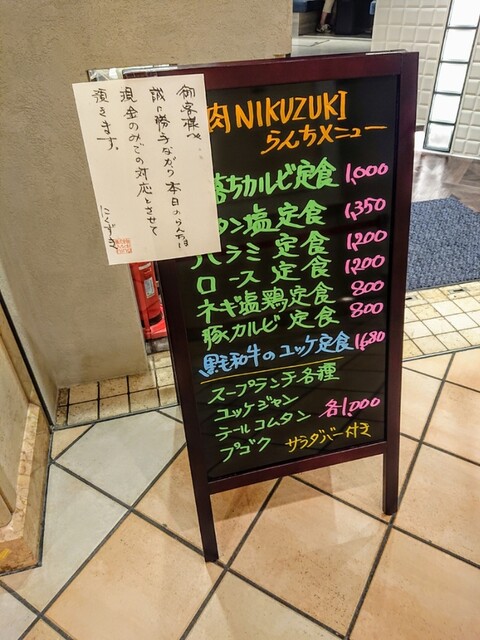 御客様へ、
誠に勝手ながら本日のらんちは
現金のみでの対応とさせて
頂きます。
にくずき
肉NIKUZUKI
らんちメニュー
落ちカルビ定食 1,000
タン塩定食 1,350
ハラミ定食 1,200
ロース定食 1,200
ネギ塩鶏定食 800
豚カルビ定食 800
黒毛和牛のユッケ定食 1,680
スープランチ各種
ユッケジャン
テールコムタン 各1,000
プゴク サラダバー付き